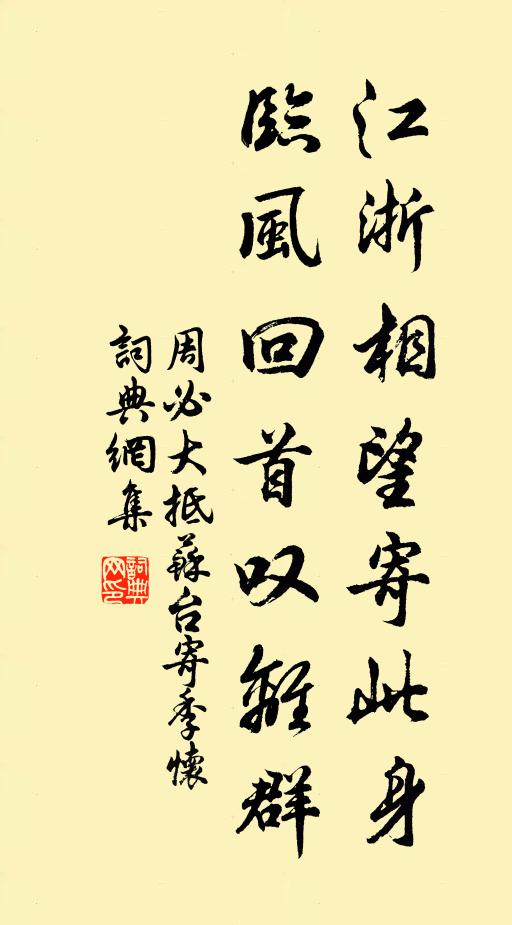 江浙相望寄此身
臨風回首叹離群
周必大抵蘇台寄季懷
詞典網集
詞典
网印